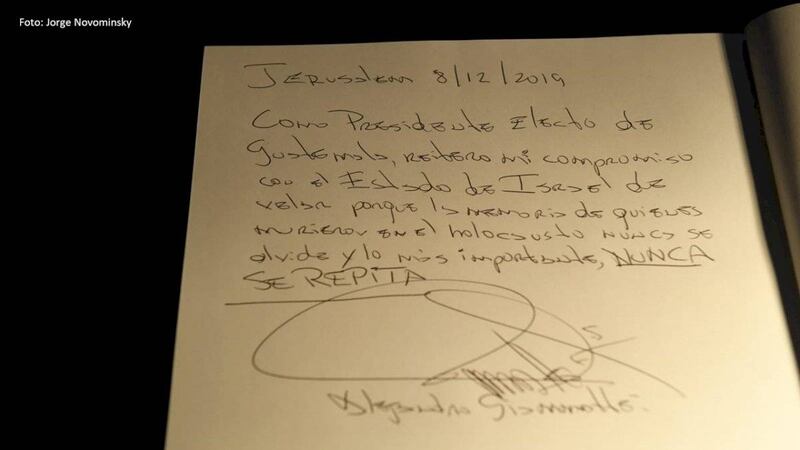 Foto: Jorge Novominsky
Jerusalem 8/12/2019
Como Presidente Electo de
Guatemala, reitero mi compromiso
con el Estado de Israel de
velar porque la memoria de quienes
murieron en el holocausto nunca se
olvide y lo más importante, NUNCA
SE REPITA
Alejandro Giammattei